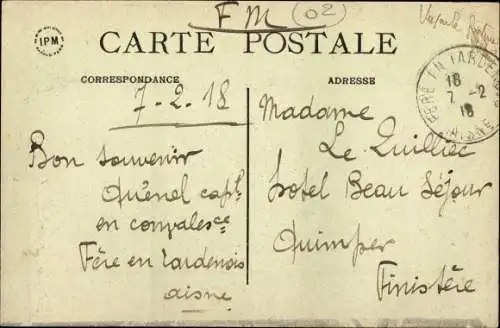 FM
02
IPM
CARTE POSTALE
CORRESPONDANCE
ADRESSE
7-2.18
Bon souvenir
Quénel capl
en convalesce
Fère en Tardenois
aisne
Madame
Le Quilliec
hotel Beau Séjour
Quimper
Finistère
FERE EN TARDENOIS
18
7 -2
18
AISNE